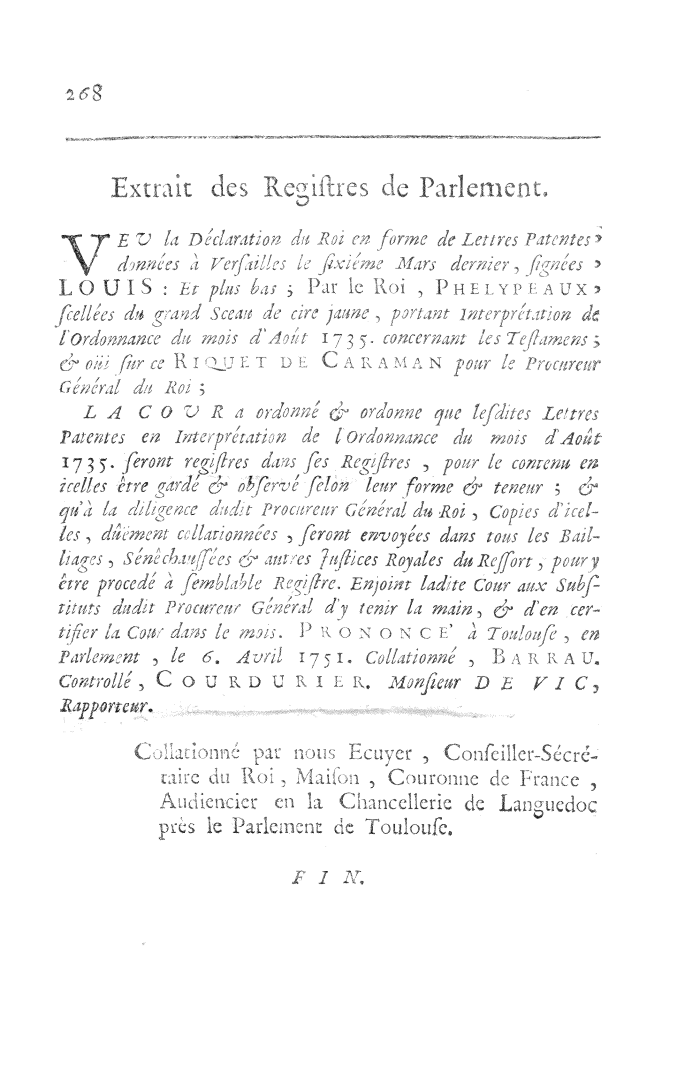 268
Extrait des Regiſtres de Parlement.
VEU la Déclaration du Roi en forme de Lettres Patentes,
données à Verſailles le ſixiéme Mars dernier, ſignées,
LOUIS : Et plus bas ; Par le Roi , PHELYPEAUX,
ſcellées du grand Sceau de cire jaune , portant Interprétation de
l'Ordonnance du mois d'Août 1735. concernant les Teſtamens ;
& oüi ſur ce RIQUET DE CARAMAN pour le Procureur
Général du Roi ;
LA COUR a ordonné & ordonne que leſdites Lettres
Patentes en Interprétation de l'Ordonnance du mois d'Août
1735. ſeront regiſtres dans ſes Regiſtres , pour le contenu en
icelles être gardé & obſervé ſelon leur forme & teneur ; &
qu'à la diligence dudit Procureur Général du Roi , Copies d'icel-
les , dûëment collationnées , ſeront envoyées dans tous les Bail-
liages , Sénêchauſſées & autres Juſtices Royales du Reſſort , pour y
être procedé à ſemblable Regiſtre. Enjoint ladite Cour aux Subſ-
tituts dudit Procureur Général d'y tenir la main , & d'en cer-
tifier la Cour dans le mois. PRONONCE' à Toulouſe , en
Parlement , le 6. Avril 1751. Collationné , BARRAU.
Controllé , COURDURIER. Monſieur DE VIC,
Rapporteur.
Collationné par nous Ecuyer , Conſeiller-Sécré-
taire du Roi , Maiſon , Couronne de France ,
Audiencier en la Chancellerie de Languedoc
près le Parlement de Toulouſe.
FIN.